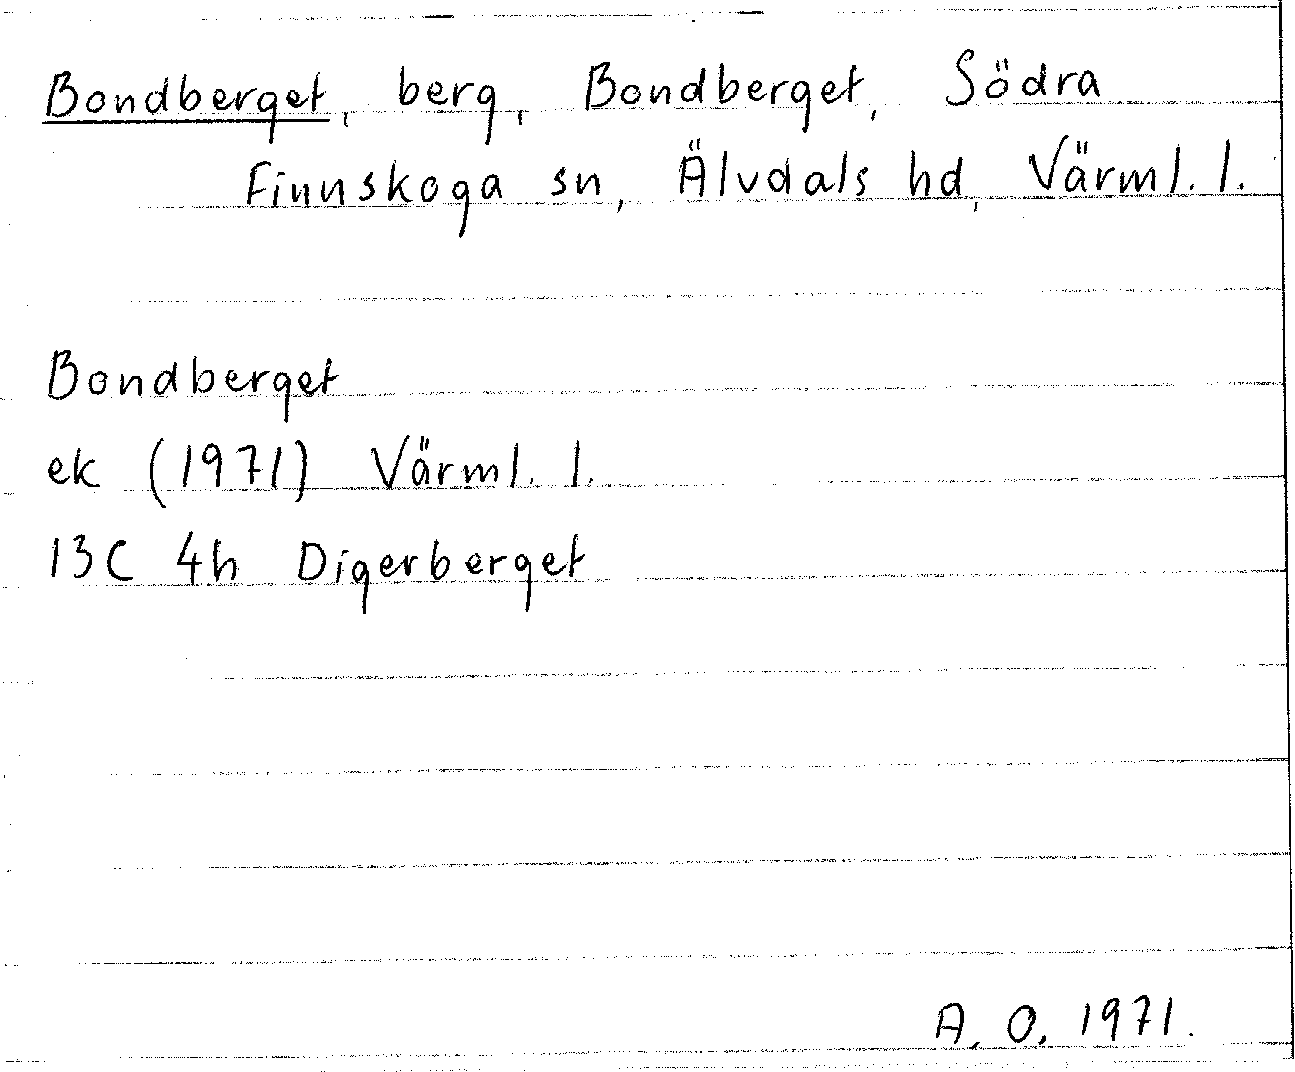 Bondberget, berg, Bondberget, Södra
Finnskoga sn, Älvdals hd, Värml. l.
Bondberget
ek (1971) Värml. l.
13C 4h Digerberget
A. O. 1971.